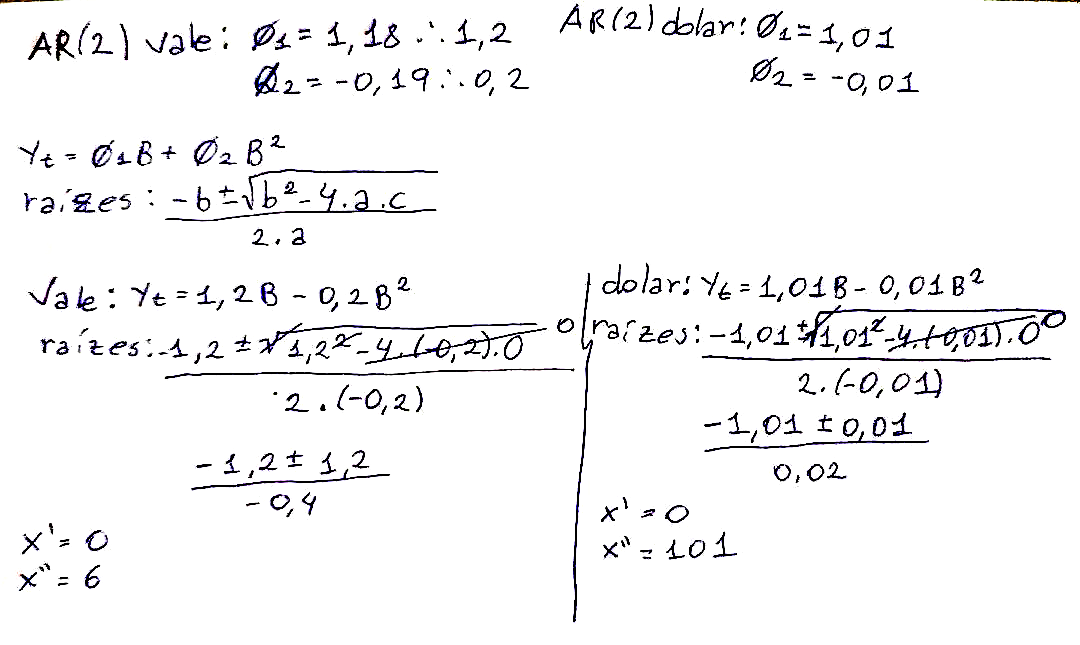 AR(2) vale: Ø1 = 1,18 ∴ 1,2
Ø2 = -0,19 ∴ 0,2
AR(2) dolar: Ø1 = 1,01
Ø2 = -0,01
Yt = Ø1B + Ø2B²
raízes: -b ± √b² - 4.a.c
2.a
Vale: Yt = 1,2B - 0,2B²
raízes: -1,2 ± √1,2² - 4.(-0,2).0 0
2.(-0,2)
-1,2 ± 1,2
-0,4
x' = 0
x" = 6
dolar: Yt = 1,01B - 0,01B²
raízes: -1,01 ± √1,01² - 4.(-0,01).0 0
2.(-0,01)
-1,01 ± 0,01
0,02
x' = 0
x" = 101